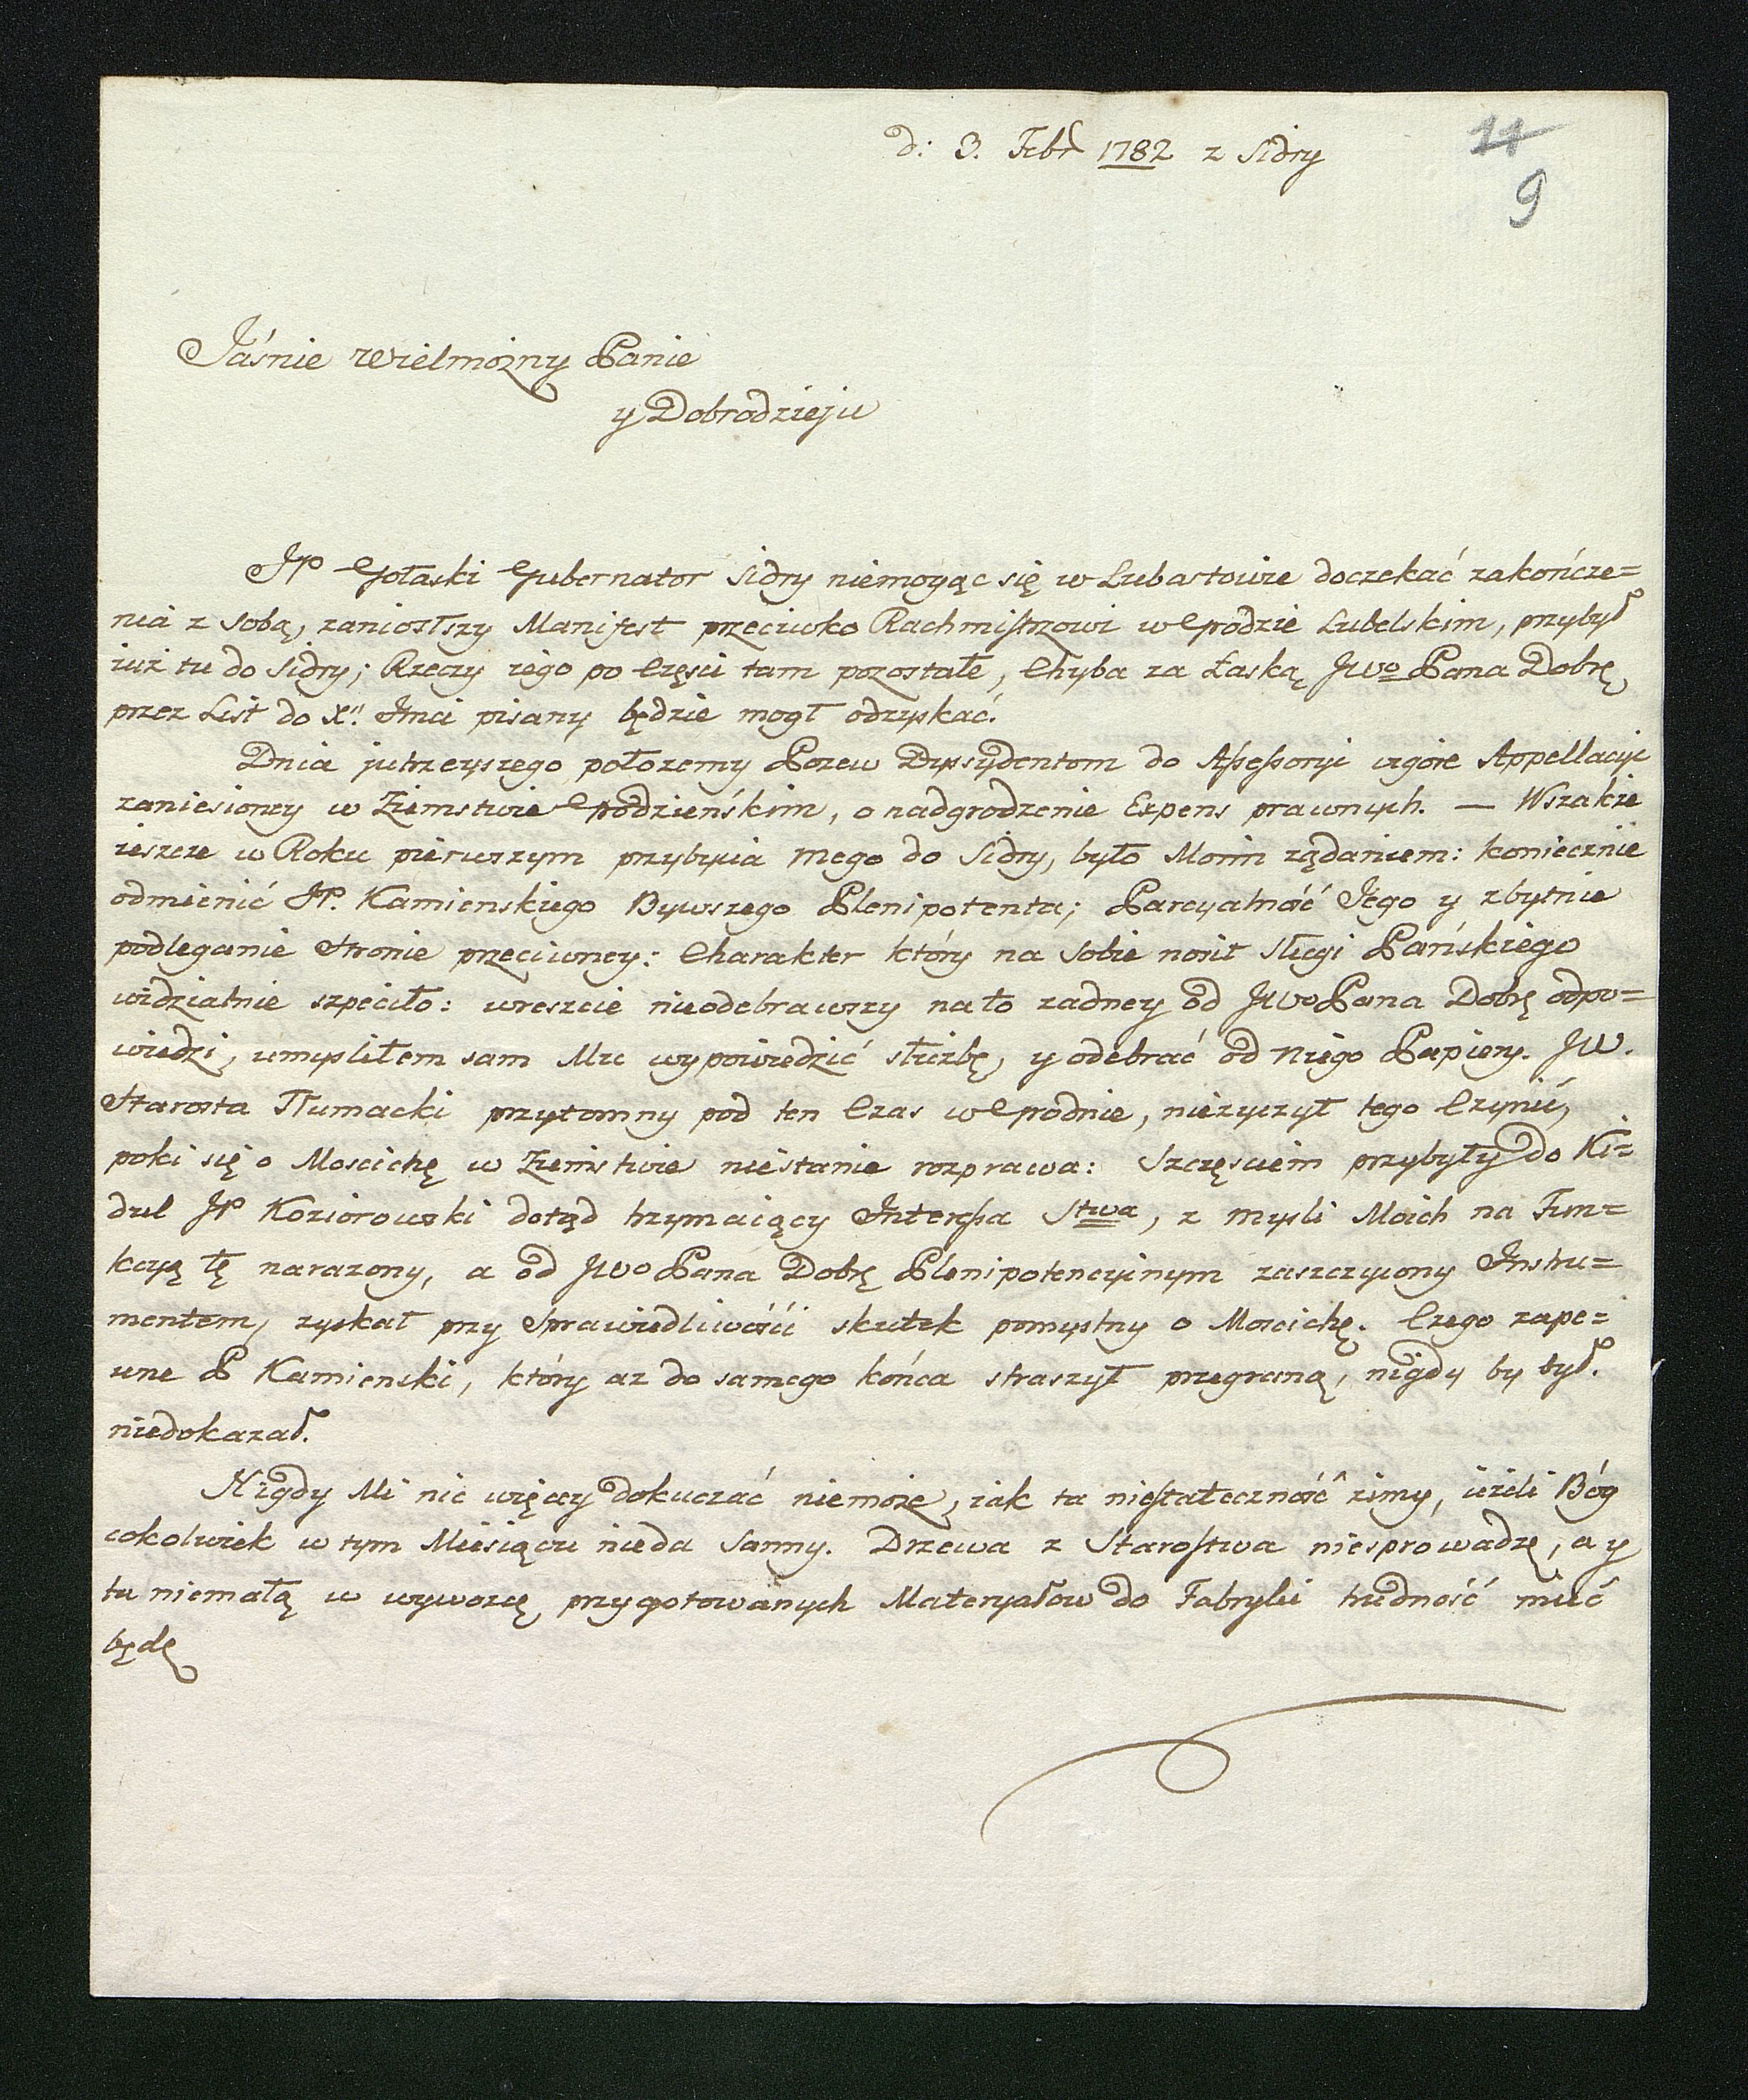 d: 3. Febr 1782 z Sidry
11
9
Jaśnie Wielmożny Panie
y Dobrodzieju
JP Gołaski Gubernator Sidry niemogąc się w Lubartowie doczekać zakończe=
nia z Sobą, zaniosłszy Manifest przeciwko Rachmistrzowi w Grodzie Lubelskim, przybył
iuż tu do Sidry; Rzeczy iego po Części tam pozostałe, Chyba za Łaską JWo Pana Dobrę
przez List do X. Jmci pisany będzie mogł odzyskać.
Dnia jutrzeyszego położemy Pozew Dyssydentom do Assessoryi vigore Appellacyi
zaniesioney w Ziemstwie Grodzieńskim, o nadgrodzenie Expens prawnych. — Wszakże
ieszcze w Roku pierwszym przybycia mego do Sidry, było Moim żądaniem: koniecznie
odmienić JP. Kamienskiego Bywszego Plenipotenta; Parcyalność Jego y zbytnie
podleganie Stronie przeciwney: Charakter który na Sobie nosił Sługi Pańskiego
widzialnie szpeciło: wreszcie nieodebrawszy na to żadney od JWo Pana Dobrę odpo=
wiedzi, umysliłem sam Mu wypowiedzić służbę, y odebrać od niego Papiery. JW.
Starosta Tłumacki przytomny pod ten Czas w Grodnie, nieżyczył tego Czynić,
poki się o Moscichę w Ziemstwie niestanie rozprawa: Szczęsciem przybyły do Ki=
dul JP Koziorowski dotąd trzymaiący Interessa Stwa, z mysli Moich na Fun=
kcyą tę narażony, a od JWo Pana Dobrę Plenipotencyinym zaszczycony Instru=
mentem, zyskał przy Sprawiedliwości skutek pomyslny o Moscichę. Czego zape=
wne P Kamienski, który aż do samego końca straszył przegraną, nigdy by był.
niedokazał.
Nigdy Mi nic więcey dokuczać niemoże, iak ta niestateczność zimy, ieżeli Bóg
cokolwiek w tym Miesiącu nieda Sanny. Drzewa z Starostwa niesprowadzę, a y
tu niemałą w wywozcę przygotowanych Materyałow do Fabryki trudność mieć
będę